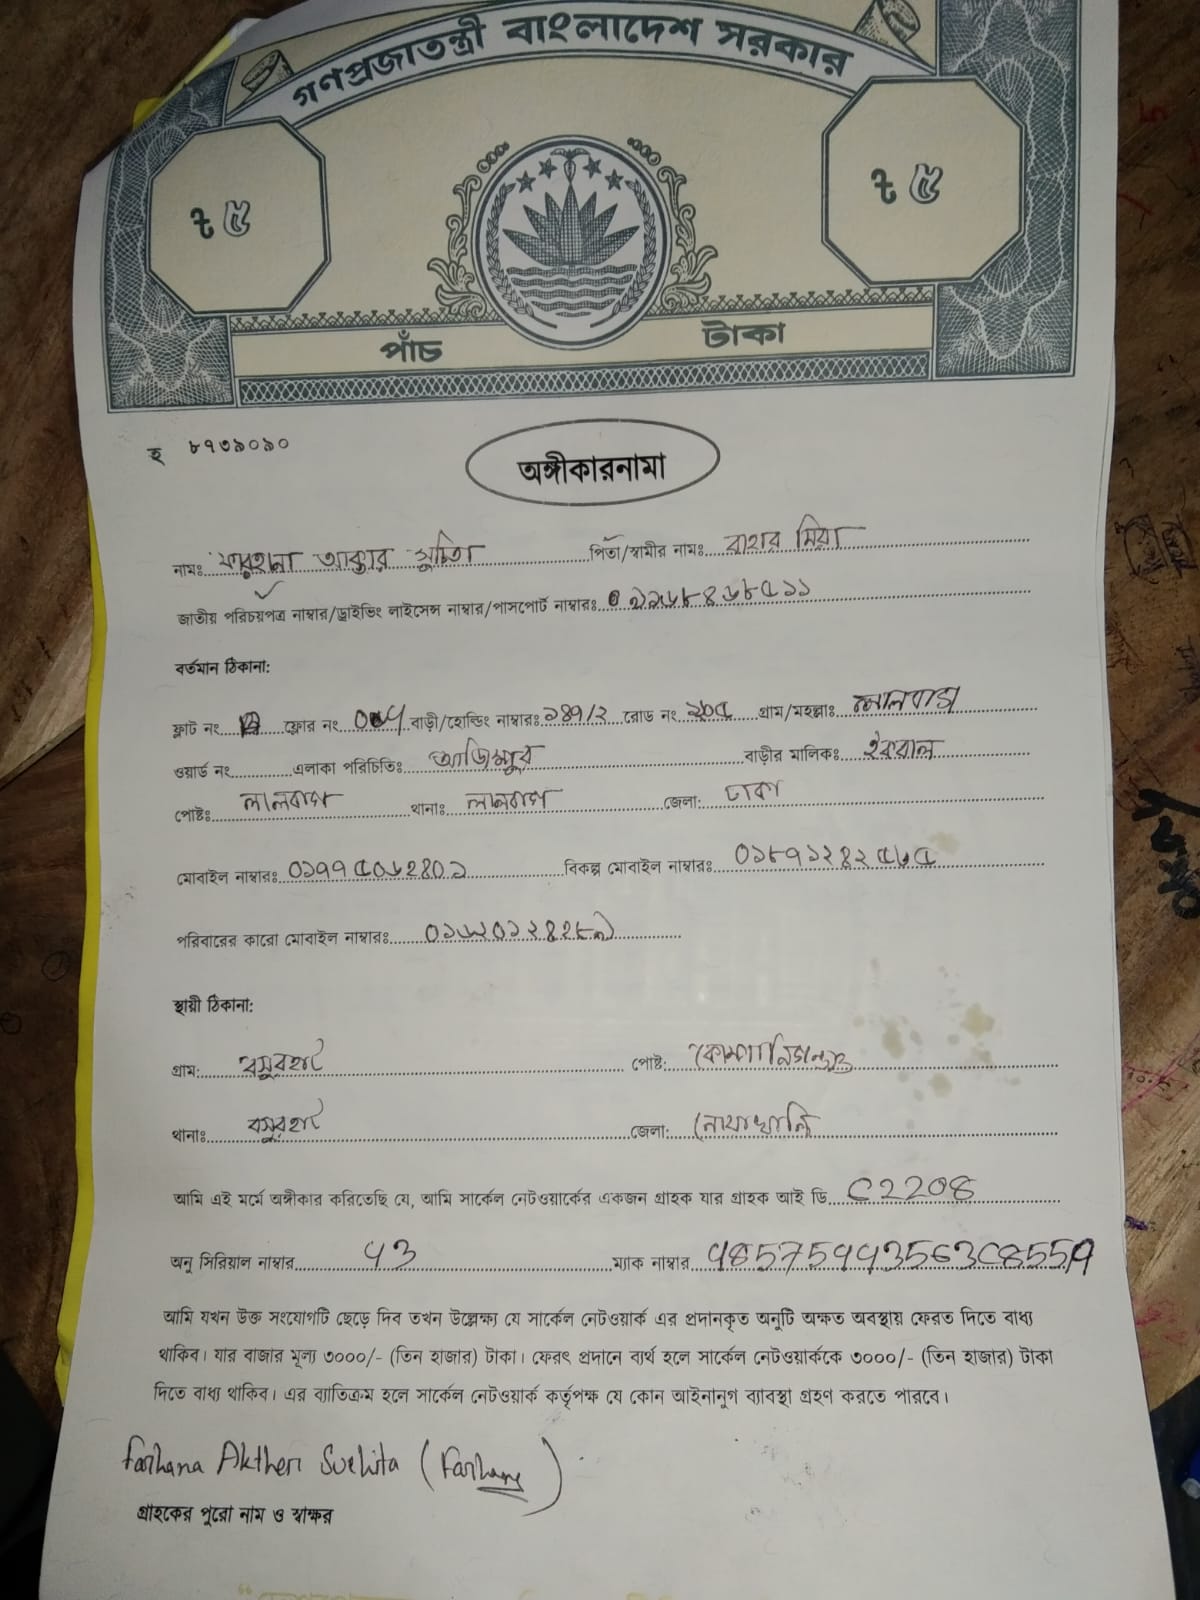 গণপ্রজাতন্ত্রী বাংলাদেশ সরকার
৳ ৫ ৳ ৫
পাঁচ টাকা
হ ৮৭৩৯০৯০
অঙ্গীকারনামা
নামঃ ফারহানা আক্তার সুচিতা পিতা/স্বামীর নামঃ বাহার মিয়া
জাতীয় পরিচয়পত্র নাম্বার/ড্রাইভিং লাইসেন্স নাম্বার/পাসপোর্ট নাম্বারঃ
বর্তমান ঠিকানা:
ফ্লাট নং ফ্লোর নং বাড়ী/হোল্ডিং নাম্বারঃ ১৪৭/২ রোড নং গ্রাম/মহল্লাঃ লালবাগ
ওয়ার্ড নং এলাকা পরিচিতিঃ আজিমপুর বাড়ীর মালিকঃ ইকবাল
পোষ্টঃ লালবাগ থানাঃ লালবাগ জেলা: ঢাকা
মোবাইল নাম্বারঃ ০১৭৭৫০৬২৪০১ বিকল্প মোবাইল নাম্বারঃ ০১৮৭১২৪২৫৬৫
পরিবারের কারো মোবাইল নাম্বারঃ
স্থায়ী ঠিকানা:
গ্রাম: বসুরহাট পোষ্ট: কোম্পানিগঞ্জ
থানাঃ বসুরহাট জেলা: নোয়াখালি
আমি এই মর্মে অঙ্গীকার করিতেছি যে, আমি সার্কেল নেটওয়ার্কের একজন গ্রাহক যার গ্রাহক আই ডি C2208
অনু সিরিয়াল নাম্বার 43 ম্যাক নাম্বার 485754435636C8559A
আমি যখন উক্ত সংযোগটি ছেড়ে দিব তখন উল্লেক্ষ্য যে সার্কেল নেটওয়ার্ক এর প্রদানকৃত অনুটি অক্ষত অবস্থায় ফেরত দিতে বাধ্য
থাকিব। যার বাজার মূল্য ৩০০০/- (তিন হাজার) টাকা। ফেরৎ প্রদানে ব্যর্থ হলে সার্কেল নেটওয়ার্ককে ৩০০০/- (তিন হাজার) টাকা
দিতে বাধ্য থাকিব। এর ব্যাতিক্রম হলে সার্কেল নেটওয়ার্ক কর্তৃপক্ষ যে কোন আইনানুগ ব্যাবস্থা গ্রহণ করতে পারবে।
Farhana Akther Suchita (Farhana)
গ্রাহকের পুরো নাম ও স্বাক্ষর